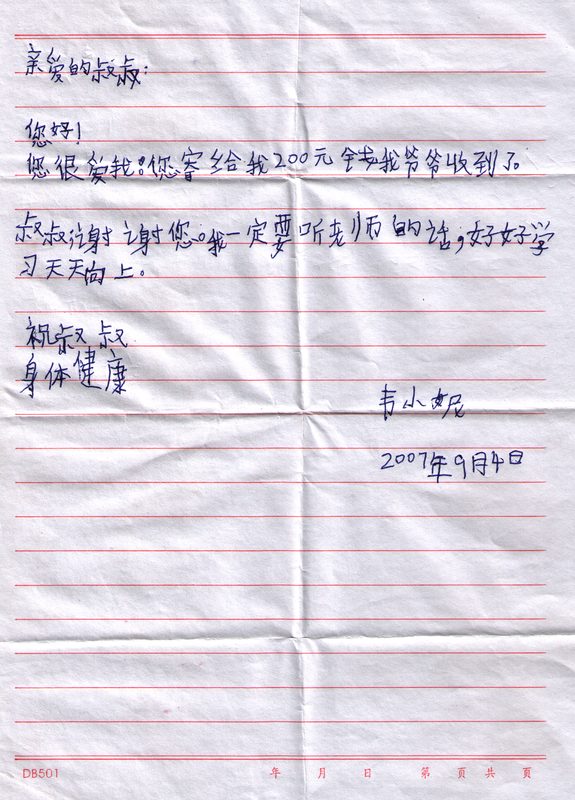 亲爱的叔叔：
您好！
您很爱我。您寄给我200元钱我爷爷收到了。
叔叔谢谢您。我一定要听老师的话，好好学
习天天向上。
祝叔叔
身体健康
韦小妮
2007年9月4日
DB501 年 月 日 第 页 共 页